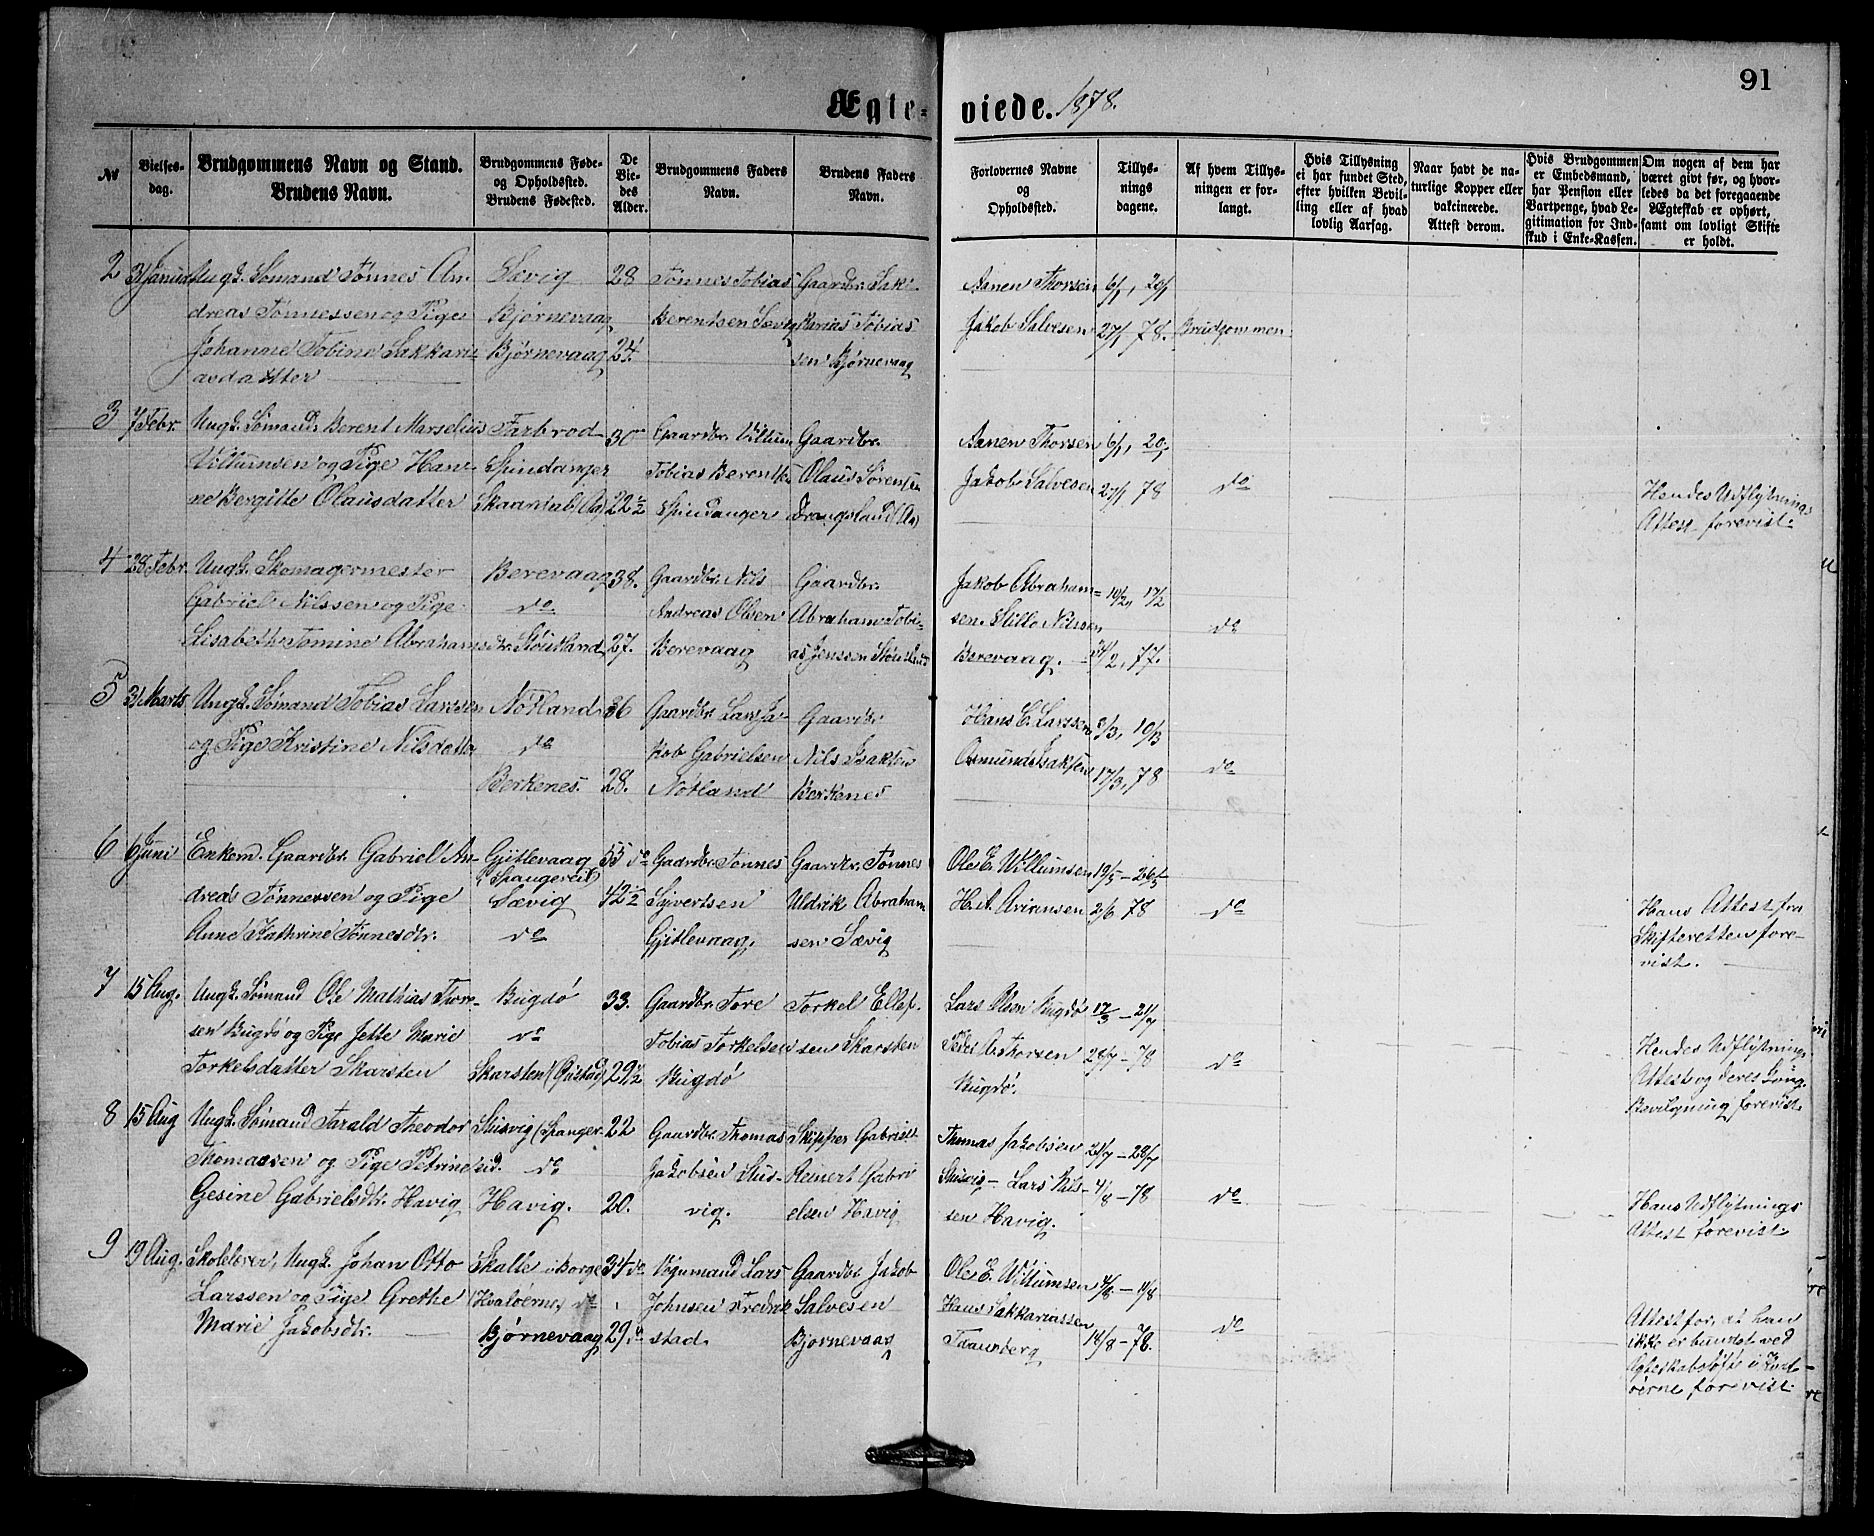 91
Ægteviede. 1878.
No
Vielsesdag.
Brudgommens Navn og Stand.
Brudens Navn.
Brudgommens Føde-
og Opholdssted.
Brudens Fødested.
De
Vie-
des
Alder.
Brudgommens Faders
Navn.
Brudens Faders
Navn.
Forlovernes Navne
og
Opholdssted.
Tillys-
nings
dagene.
Af hvem Tillys-
ningen er for-
langt.
Hvis Tillysning
ei har fundet Sted,
efter hvilken Bevil-
ling eller af hvad
lovlig Aarsag.
Naar havt de na-
turlige Kopper eller
vakcinerede.
Attest derom.
Hvis Brudgommen
er Embedsmand,
har Pension eller
Vartpenge, hvad Le-
gitimation for Ind-
skud i Enke-Kassen.
Om nogen af dem har
været givt før, og hvor-
ledes da det foregaaende
Ægteskab er ophørt,
samt om lovligt Skifte
er holdt.
2 31 Januar Ungk. Sømand Tønnes An- Sævig 28 Tønnes Tobias Gaardbr. Sak- Aanen Thorsen 6/1, 20/1
dreas Tønnessen og Pige Bjørnevaag Berentsen Sævig karias Tobias Jakob Salvesen 27/1 78. Brudgommen
Johanne Tobine Sakkari- Bjørnevaag 24. sen Bjørnevaag
asdatter
3 7 Febr. Ungk. Sømand Berent Marselius Farbrod 30 Gaardbr. Villum Gaardbr. Aanen Thorsen 6/1, 20/1
Villumsen og Pige Han- Spindanger Tobias Berentsen Olaus Sørensen Jakob Salvesen 27/1 78 do Hendes Udflytnings
ne Bergitte Olausdatter 22 1/2 Spindanger Drangsland Attest forevist.
4 28 Febr. Ungk. Skomagermester Berevaag 38. Gaardbr. Nils Gaardbr. Jakob Abraham- 10/2, 17/2
Gabriel Nilssen og Pige do Andreas Olsen Abraham Tobi- sen. do
Elisabeth Tomine Abrahamsdtr. Stoutland 27. Berevaag as Jenssen Stoutland Berevaag.
5 Marts Ungk. Sømand Tobias Larssen Nøtland 36 Gaardbr. Lars Ja- Gaardbr. Hans C. Larssen 3/3, 10/3
og Pige Kristine Nilsdatter do kob Gabrielsen Nils Isaksen Osmund Isaksen 17/3, 78 do
Berkenes. 28. Nøtland Berkenes
6 6 Juni Enkem. Gaardbr. Gabriel An- Gjitlevaag 55 do Gaardbr. Tønnes Gaardbr. Tønnes Ole E. Willumsen 19/5 – 26/5
dreas Tønnessen og Pige (Spangereid) Sævig 42 1/2 Sijvertsen Uldrik Abraham H. A. Ariansen 2/6 78 do Hans Attest fra
Anne Kathrine Tønnesdtr. do Gjitlevaag. sen Sævig Skifteretten fore-
vist.
7 15 Aug. Ungk. Sømand Ole Mathias Tore- Bugdø 33. Gaardbr. Tore Torkel Ellef- Lars Olsen Bugdø – 21/7
sen Bugdø og Pige Jette Marie do Tobias Torkelsen sen Skarsten Peder A. Thorsen 28/7 – 78 do Hendes Udflytnings
Torkelsdatter Skarsten Skarsten 29 1/2 Bugdø Bugdø. Attest og deres Kong.
Bevilgning forevist.
8 15 Aug Ungk. Sømand Tarald Theodor Stusvig (Spanger- 22 Gaardbr. Thomas Skipper Gabriel Thomas Jakobsen 21/7 – 28/7
Thomassen og Pige Petrine eid. do Jakobsen Stus- Reinert Gabri Stusvig – Lars Nils- 4/8 – 78 do Hans Udflytnings
Gesine Gabrielsdtr. Havig Havig. 20. vig. elsen Havig sen Havig. Attest forevist.
9 19 Aug. Skolelærer, Ungk. Johan Otto Skalle i Borge 34 do Lars Gaardbr. Jakob Ole E. Willumsen 4/8 – 11/8
Larssen og Pige Grethe (Hvaløerne) do Johnsen Fredrik Salvesen Hans Sakkariassen do Attest for, at han
Marie Jakobsdtr. Bjørnevaag 29 do stad. Bjørnevaag 18/8 – 78. ikke er bundet ved
Ægteskabsløfte i Hval-
øerne forevist.